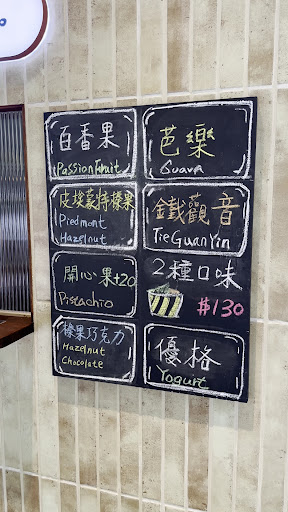 百香果
Passion fruit
芭樂
Guava
皮埃蒙特榛果
Piedmont
Hazelnut
鐵觀音
TieGuanYin
開心果+20
Pistachio
2種口味
$130
榛果巧克力
Hazelnut
Chocolate
優格
Yogurt